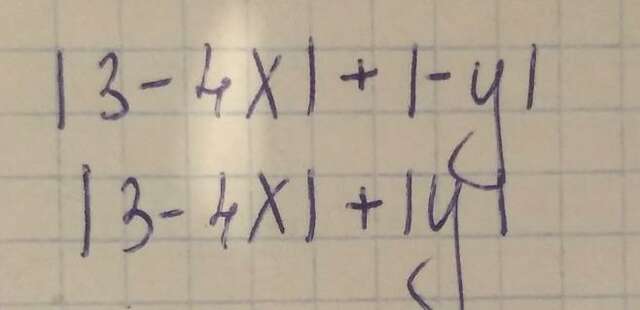 |3-4x|+|-y|
|3-4x|+|y|